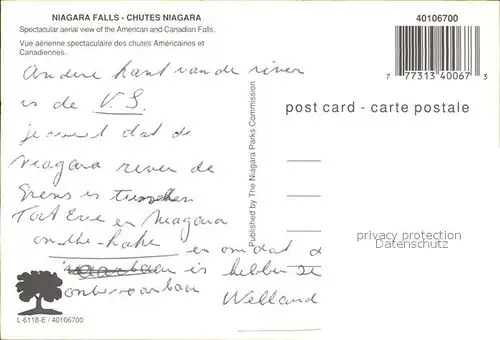 NIAGARA FALLS - CHUTES NIAGARA
Spectacular aerial view of the American and Canadian Falls.
Vue aérienne spectaculaire des chutes Américaines et
Canadiennes.
40106700
7 77313 40067 3
post card - carte postale
Published by The Niagara Parks Commission
Andere kant van de river
is de V.S.
je weet dat de
Niagara river de
Grens is tusschen
Fort Erie en Niagara
on-the-hake
en omdat d
is hebben ze
onbevaarbaar
Welland
privacy protection
Datenschutz
L-6118-E / 40106700